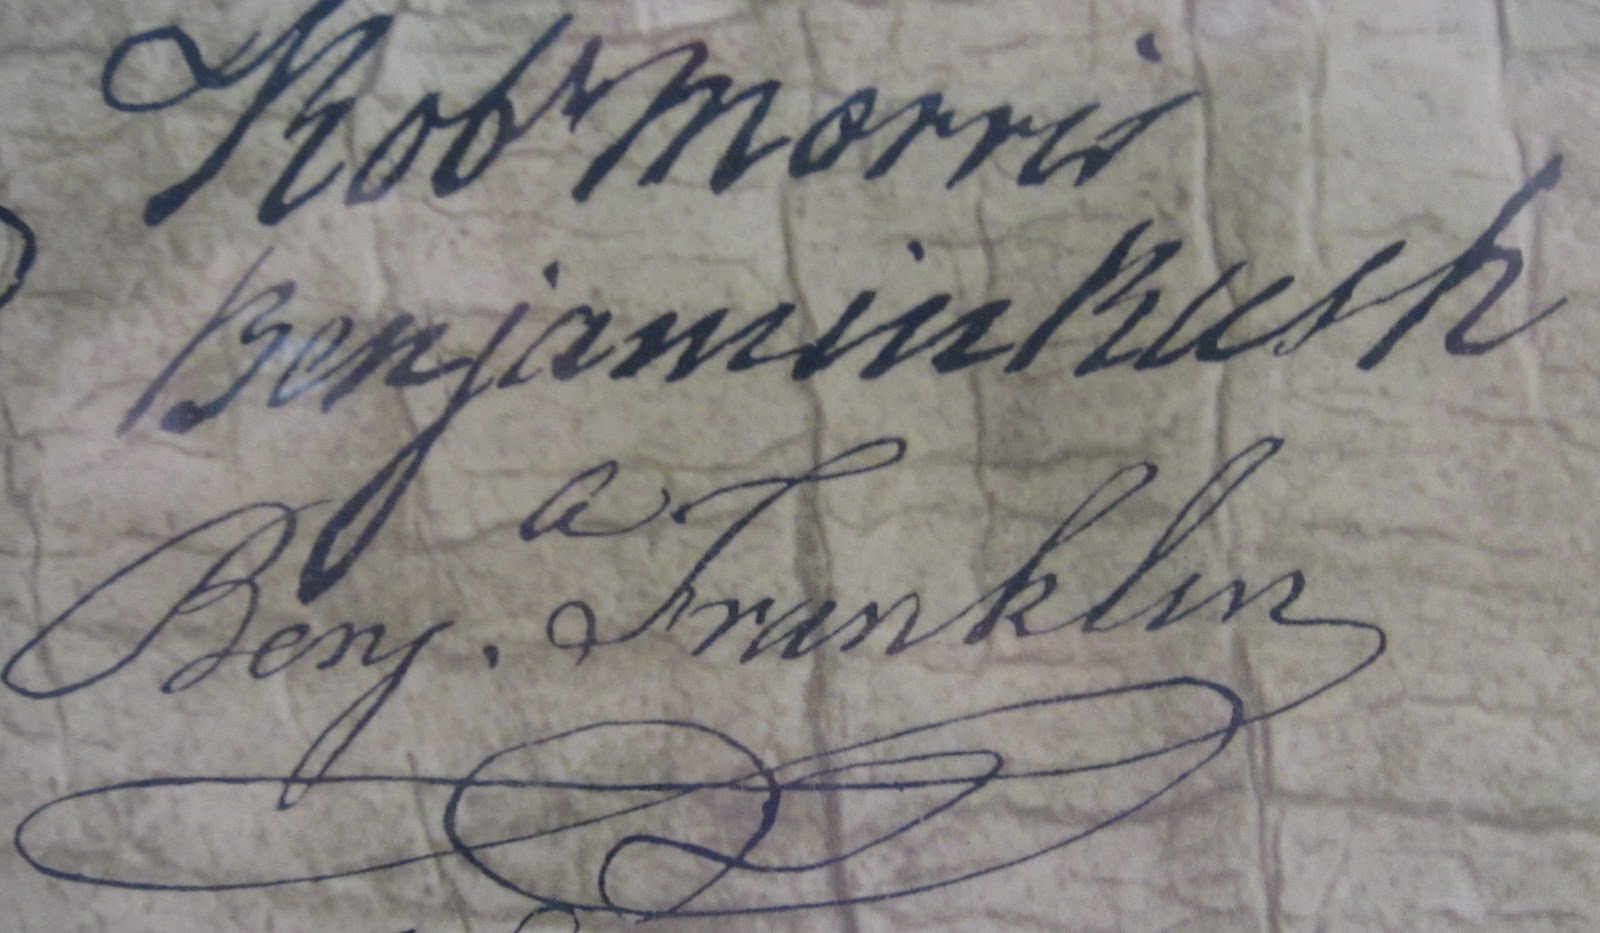 Robt Morris
Benjamin Rush
a
Benj. Franklin